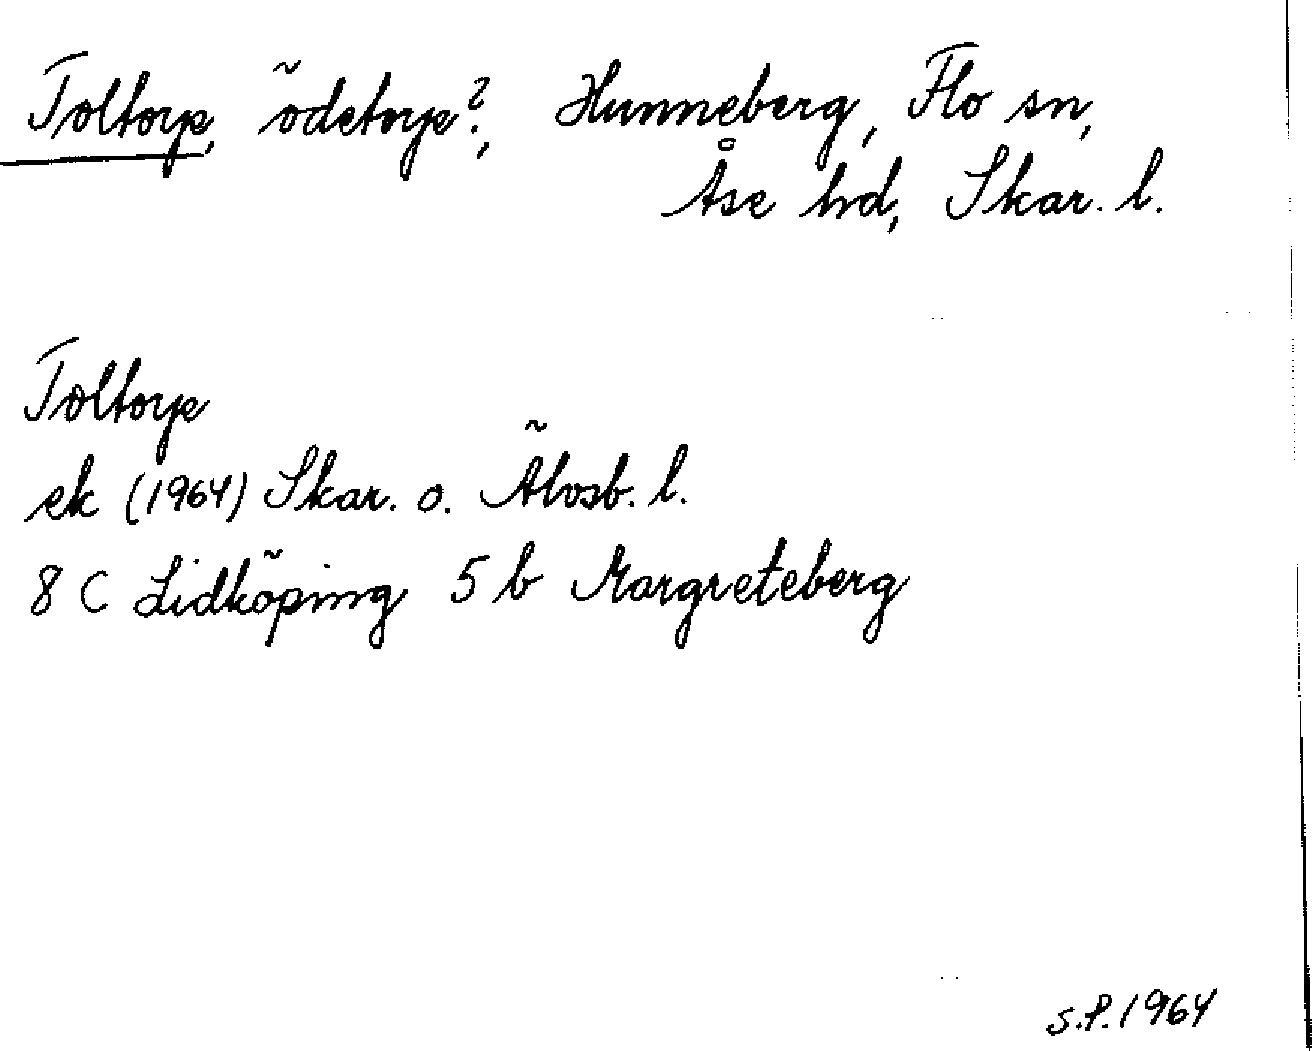 Toltorp, ödetorp?, Hunneberg, Flo sn,
Åse hd, Skar. l.
Toltorp
ek (1964) Skar. o. Älvsb. l.
8 C Lidköping 5 b Margreteberg
S.P. 1964